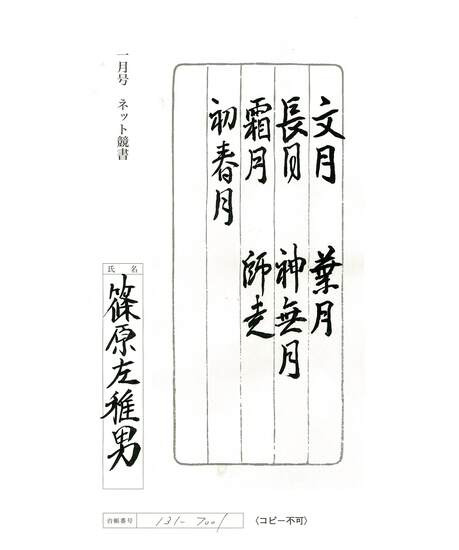 文月 葉月
長月 神無月
霜月 師走
初春月
一月号 ネット競書
氏 名
篠原左稚男
台帳番号 131-7001 (コピー不可)